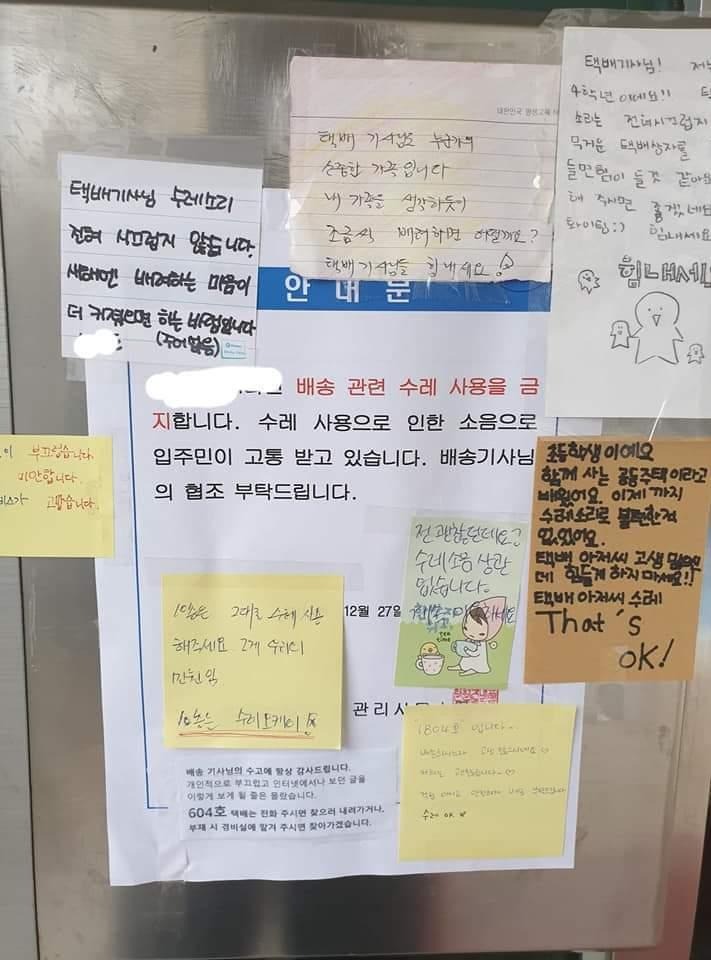 택배기사님!
4학년이에요!!
소리는 전혀시끄럽지
무거운 택배상자를
들면힘이 들것 같아요
해 주시면 좋겠네요
화이팅:) 힘내세요
힘내세요
택배 기사님도 누군가의
소중한 가족입니다
내 가족을 생각하듯이
조금씩 배려하면 어떨까요?
택배 기사님들 힘내세요
택배기사님 수레소리
전혀 시끄럽지 않습니다.
새해엔 배려하는 마음이
더 커졌으면 하는 바램입니다
(주어없음)
안내문
배송 관련 수레 사용을 금
지합니다. 수레 사용으로 인한 소음으로
입주민이 고통 받고 있습니다. 배송기사님
의 협조 부탁드립니다.
12월 27
관리사무
부끄럽습니다.
미안합니다.
고맙습니다.
초등학생이에요
함께 사는 공동주택이라고
배웠어요. 이제까지
수레소리로 불편한적
없었어요.
택배 아저씨 고생 많으신
데 힘들게 하지마세요!!
택배 아저씨 수레
That's
OK!
전 괜찮던데요?
수레소음 상관
없습니다.
tea time
그대로 수레 사용
해주세요
수레오케이
배송 기사님의 수고에 항상 감사드립니다.
개인적으로 부끄럽고 인터넷에서나 보던 글을
이렇게 보게 될 줄은 몰랐습니다.
604호 택배는 전화 주시면 찾으러 내려가거나,
부재 시 경비실에 맡겨 주시면 찾아가겠습니다.
1804호 입니다.
수레 OK